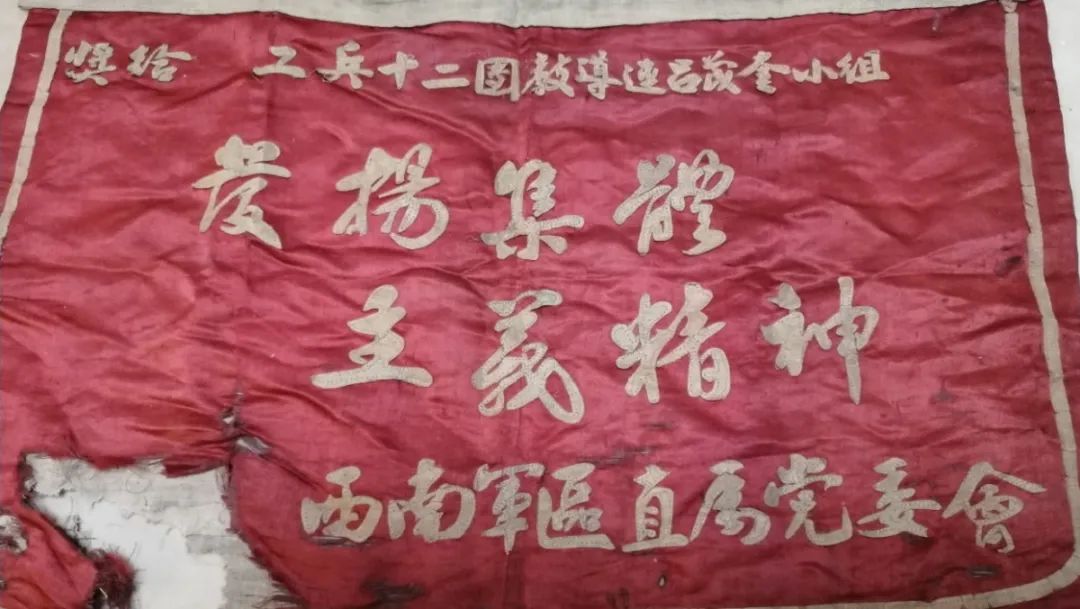 奬给 工兵十二團教導連呂茂奎小组
發揚集體
主義精神
西南軍區直属党委會